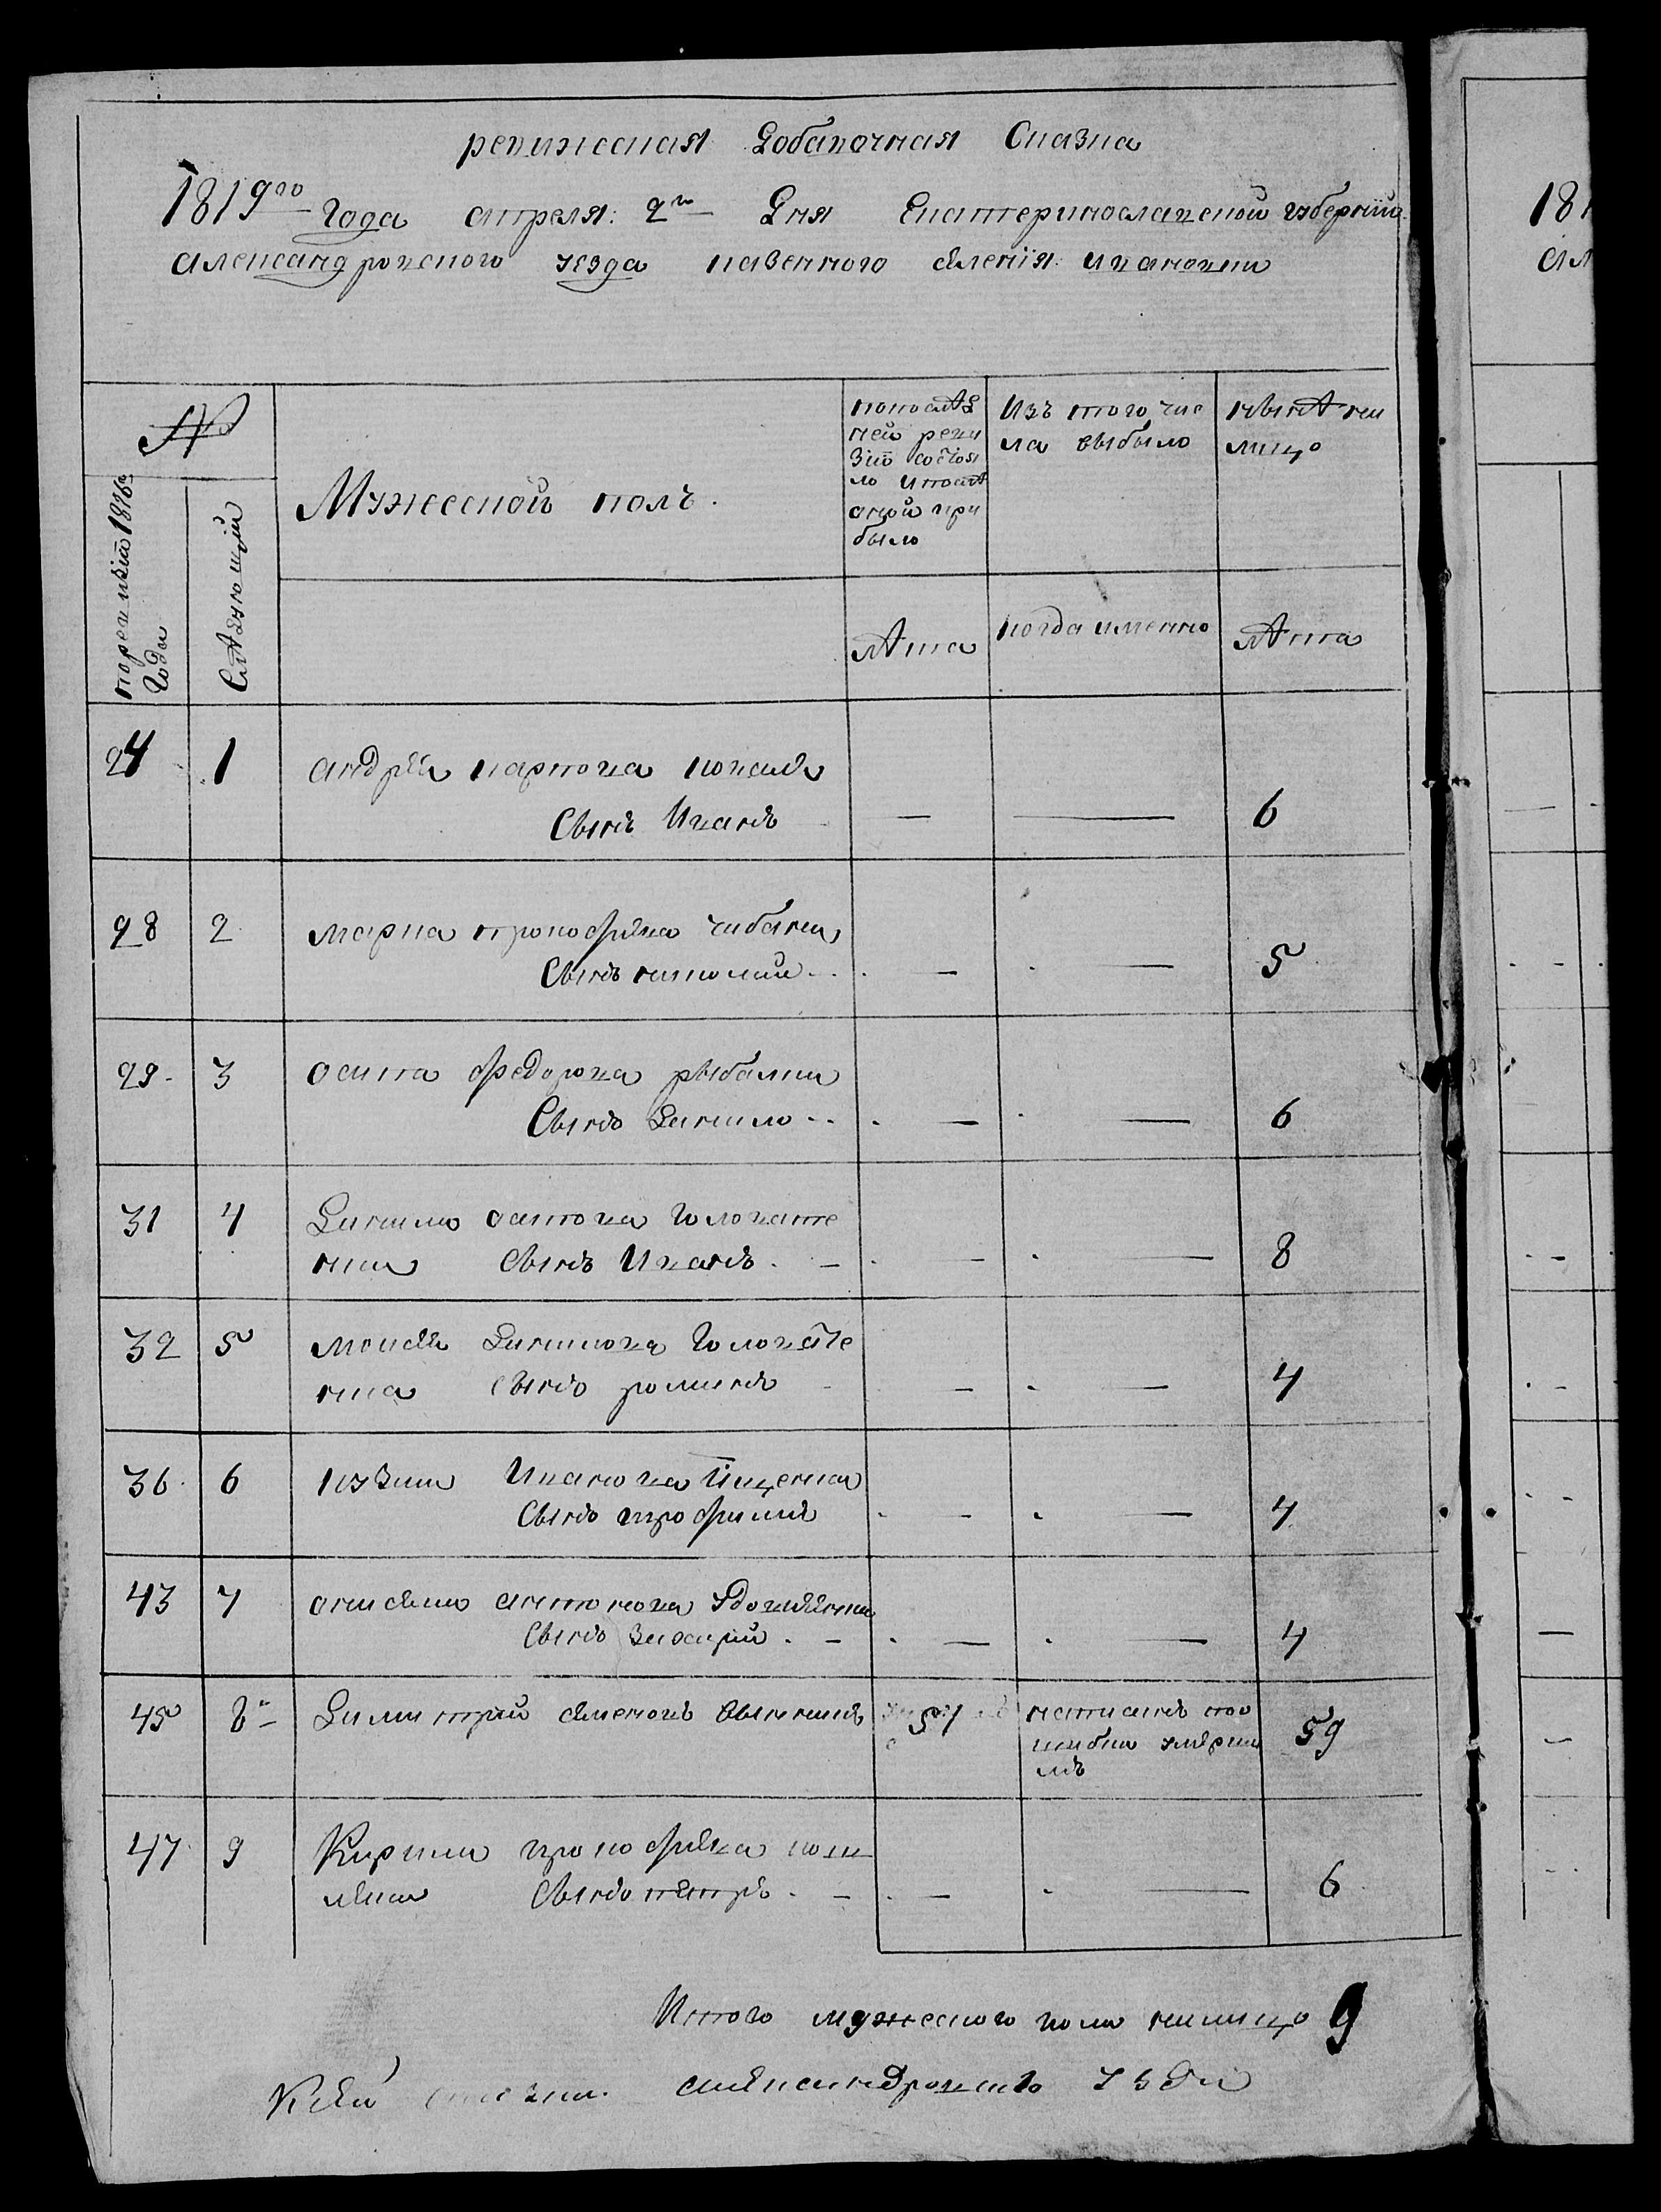 ревижская Добавочная Сказка
1819го года апреля: 2го Дня Екатеринославской губернии
александровского уезда казенного селения: ивановки
№
Мужеской полъ.
по ревизкіи 1816го года
Слѣдующій
по послѣд
ней реви
зіи состоя
ло и послѣ
оной при
было
Изъ того чис
ла выбыло
нынѣ на
лицо
лѣта
когда именно
лѣта
24 1 андрѣя карпова коваля
Сынъ Иванъ — — 6
28 2 марка прокофѣва чабана
Сынъ николай — — 5
29 3 осипа федорова рыбалки
Сынъ Данило — — 6
31 4 Данила осипова головате
нка Сынъ Иванъ — — 8
32 5 моисѣя Данилова головате
нка Сынъ романъ — — 4
36 6 кузми Иванова
Сынъ трофимъ — — 4
43 7 анисима антонова
Сынъ захарий — — 4
45 8 Димитрий семеновъ 57 написанъ по о
шибки умѣрши
мъ 59
47 9 Кирила прокофѣва кова
ленка Сынъ петръ — — 6
Итого мужеского пола налицо 9
К сей сказки александровского